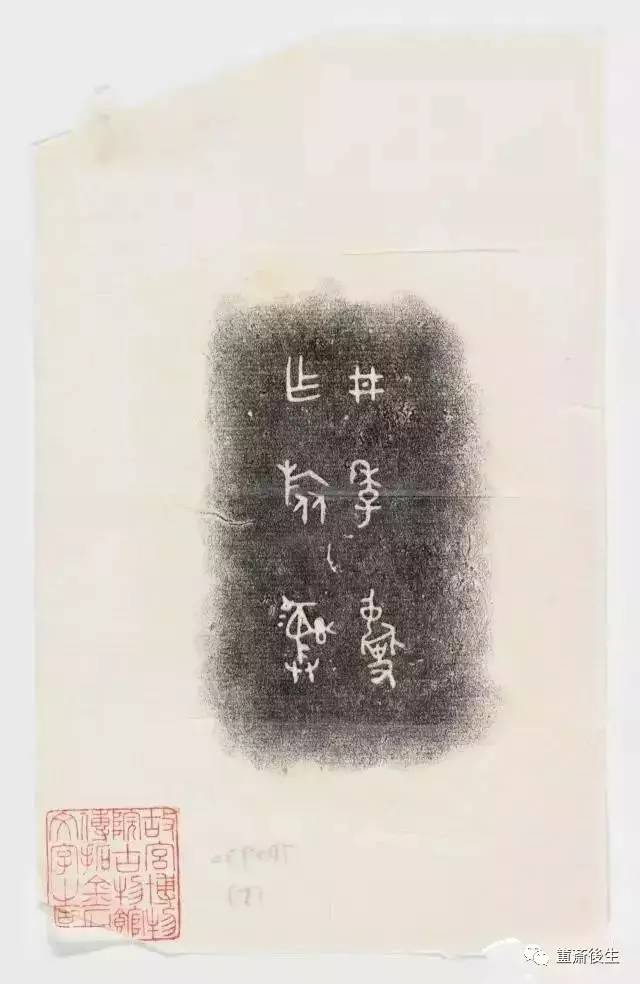 井季夐
乍旅彝
故宮博物
院古物館
傳拓金石
文字之記
董斋後生